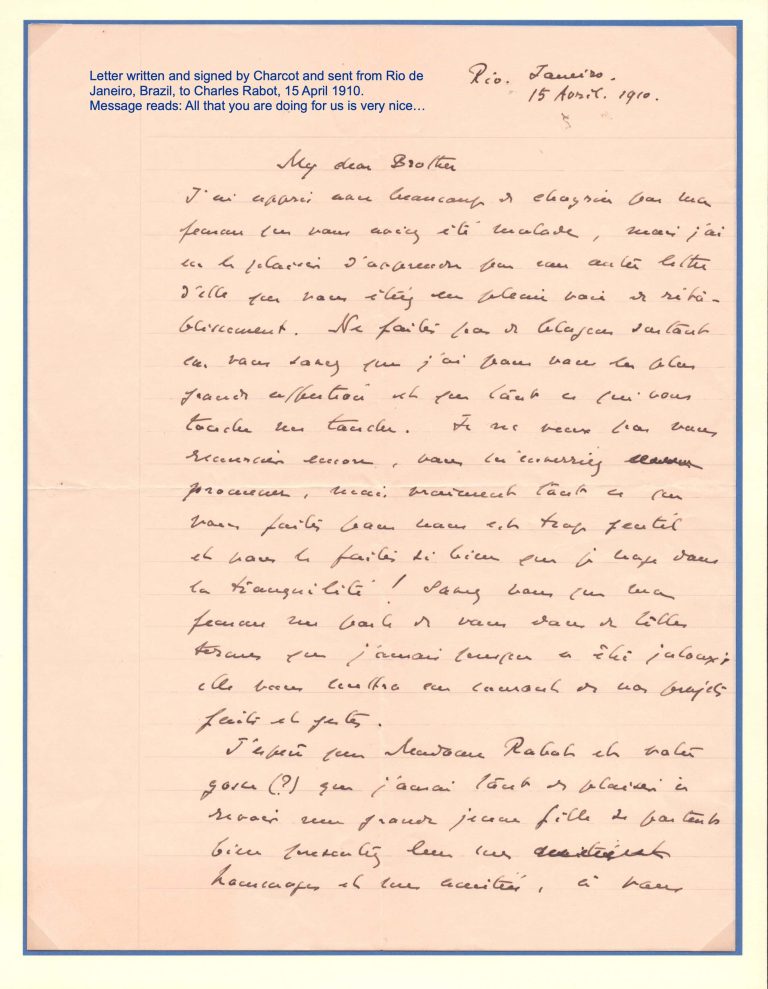 Letter written and signed by Charcot and sent from Rio de
Janeiro, Brazil, to Charles Rabot, 15 April 1910.
Message reads: All that you are doing for us is very nice…
Rio. Janeiro.
15 Avril. 1910.
My dear Brother
J'ai appris avec beaucoup de chagrin par ma
femme que vous aviez été malade, mais j'ai
eu le plaisir d'apprendre par une autre lettre
d'elle que vous étiez en pleine voie de réta-
blissement. Ne faites pas de blagues surtout
car vous savez que j'ai pour vous la plus
grande affection et que tout ce qui vous
touche me touche. Je ne veux pas vous
remercier encore, vous m'enverriez
promener, mais vraiment tout ce que
vous faites pour nous est trop gentil
et vous le faites si bien que je nage dans
la tranquilité ! Savez vous que ma
femme me parle de vous dans de telles
termes que j'aurais presque été jaloux;
elle vous mettra au courant de nos projets
faits et gestes.
J'espère que Madame Rabot et votre
gosse (?) que j'aurai tant de plaisir à
revoir une grande jeune fille se portent
bien presentez leur mes
hommages et mes amitiés, à vous